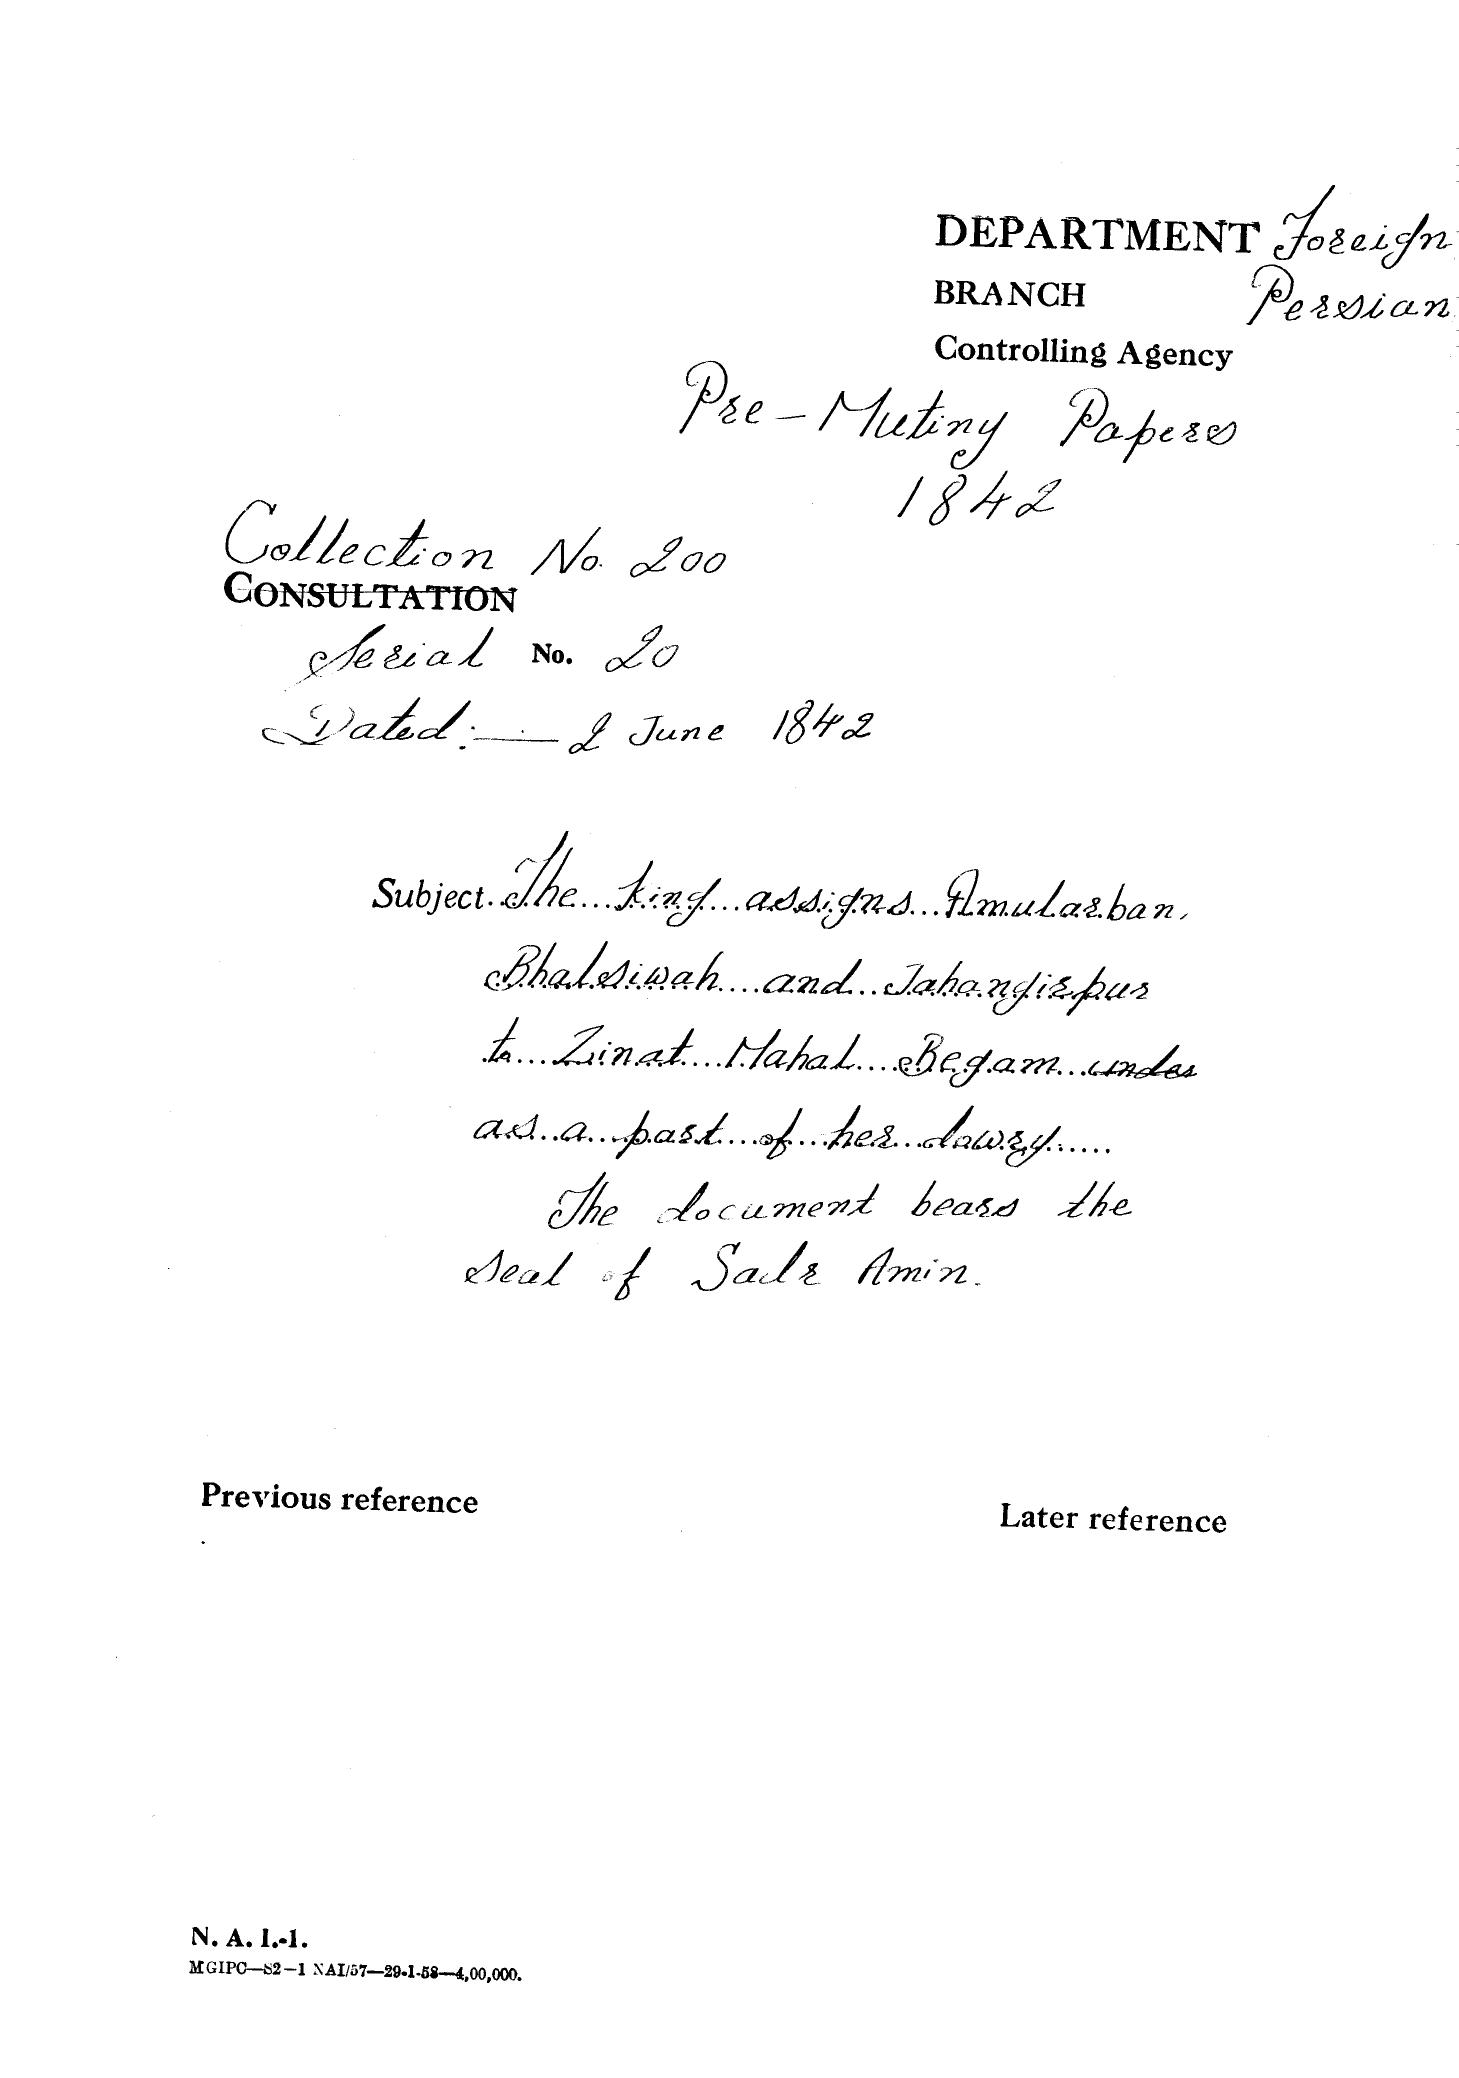 DEPARTMENT Foreign
BRANCH Persian
Controlling Agency
Pre-Mutiny Papers
1842
Collection No. 200
CONSULTATION
Serial No. 20
Dated:— 2 June 1842
Subject. The king assigns Amularban,
Bhalsiwah and Jahangirpur
to Zinat Mahal Begam under
as a part of her dowry.....
The document bears the
seal of Sadr Amin.
Previous reference
Later reference
N. A. I.-1.
MGIPC—S2—1 NAI/57—29-1-58—4,00,000.